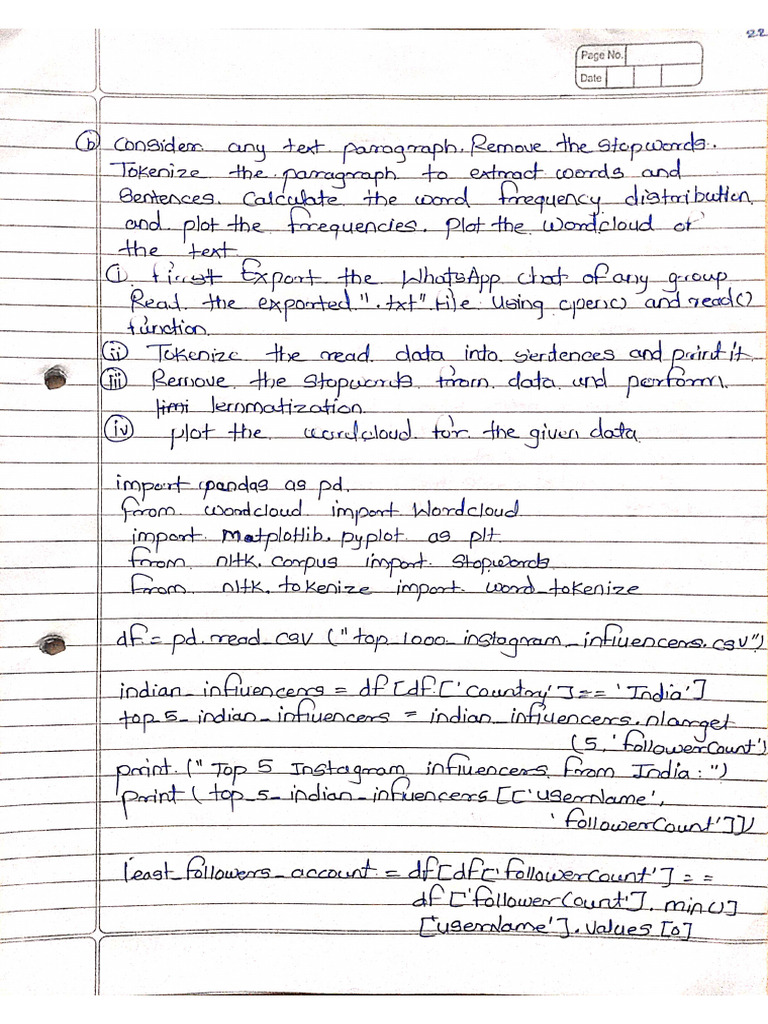 22
Page No.
Date
(b) Consider any text paragraph. Remove the stopwords.
Tokenize the paragraph to extract words and
sentences. Calculate the word frequency distribution
and plot the frequencies. Plot the wordcloud of
the text
(i) First Export the WhatsApp chat of any group
Read the exported ".txt" file using open() and read()
function.
(ii) Tokenize the read data into sentences and print it
(iii) Remove the stopwords from data and perform
lemmatization
(iv) plot the wordcloud for the given data
import pandas as pd.
from wordcloud import Wordcloud
import Matplotlib.pyplot as plt
from nltk.corpus import stopwords
from nltk.tokenize import word_tokenize
df = pd.read_csv ("top_1000_instagram_influencers.csv")
indian_influencers = df[df['Country'] == 'India']
top_5_indian_influencers = indian_influencers.nlarget
(5, 'followerCount')
print ("Top 5 Instagram influencers from India:")
print (top_5_indian_influencers [['userName',
'followerCount']])
least_followers_account = df[df['followerCount'] ==
df['followerCount'].min()]
['userName'].values[0]